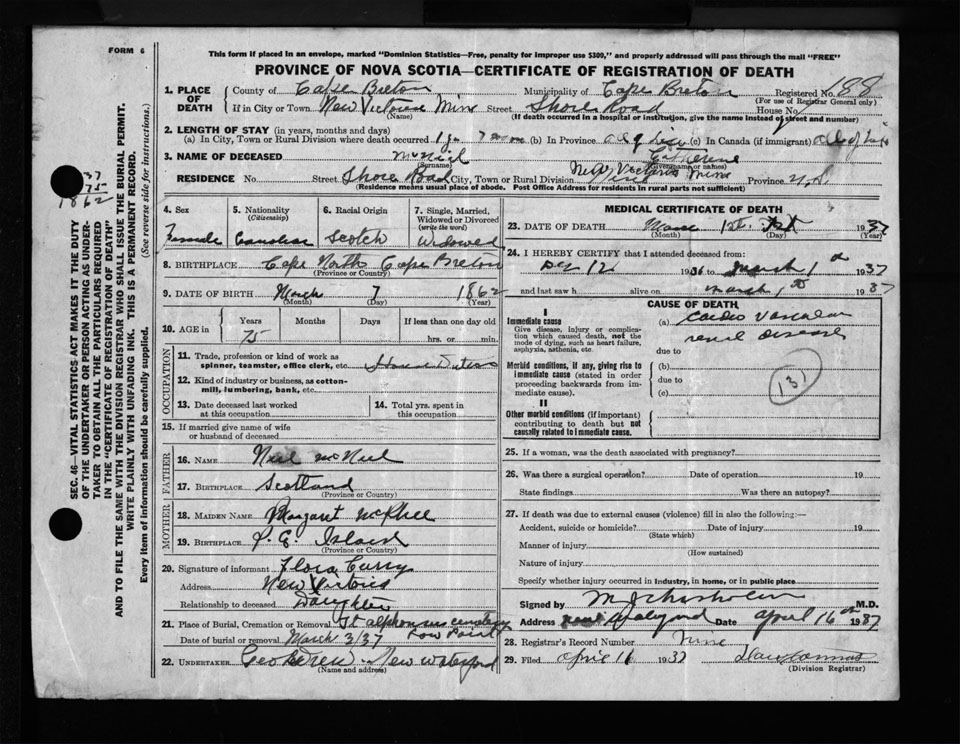 FORM 6
This form if placed in an envelope, marked "Dominion Statistics—Free, penalty for improper use $300," and properly addressed will pass through the mail "FREE"
PROVINCE OF NOVA SCOTIA—CERTIFICATE OF REGISTRATION OF DEATH
1. PLACE OF DEATH
County of Cape Breton Municipality of Cape Breton Registered No. 188
(For use of Registrar General only)
If in City or Town New Victoria Mine Street Shore Road House No.
(Name) (If death occurred in a hospital or institution, give the name instead of street and number)
2. LENGTH OF STAY (in years, months and days)
(a) In City, Town or Rural Division where death occurred (b) In Province all of life (c) In Canada (if immigrant) all of life
3. NAME OF DECEASED McNeil Catherine
(Surname) (Given name or names)
RESIDENCE No. Street Shore Road City, Town or Rural Division New Victoria Mine Province N.S.
(Residence means usual place of abode. Post Office Address for residents in rural parts not sufficient)
4. Sex Female
5. Nationality (Citizenship) Canadian
6. Racial Origin Scotch
7. Single, Married, Widowed or Divorced (write the word) Widowed
8. BIRTHPLACE Cape North Cape Breton
(Province or Country)
9. DATE OF BIRTH March 7 1862
(Month) (Day) (Year)
10. AGE in Years Months Days If less than one day
75 hrs. or min.
OCCUPATION
11. Trade, profession or kind of work as spinner, teamster, office clerk, etc. House Duties
12. Kind of industry or business, as cotton-mill, lumbering, bank, etc.
13. Date deceased last worked at this occupation
14. Total yrs. spent in this occupation
15. If married give name of wife or husband of deceased
FATHER
16. NAME Neil McNeil
17. BIRTHPLACE Scotland
(Province or Country)
MOTHER
18. MAIDEN NAME Margaret McPhee
19. BIRTHPLACE P.E. Island
(Province or Country)
20. Signature of informant Flora Curry
Address New Victoria
Relationship to deceased Daughter
21. Place of Burial, Cremation or Removal St alphonsus cemetery
Date of burial or removal March 3/37 Low Point
22. UNDERTAKER New Waterford
(Name and address)
MEDICAL CERTIFICATE OF DEATH
23. DATE OF DEATH 1st 1937
(Month) (Day) (Year)
24. I HEREBY CERTIFY that I attended deceased from:
Dec 12 1936 to March 1 1937
and last saw h alive on March 1st 1937
CAUSE OF DEATH
I
Immediate cause (a) Cardio vascular
Give disease, injury or complication which caused death, not the mode of dying, such as heart failure, asphyxia, asthenia, etc. renal disease
due to
Morbid conditions, if any, giving rise to immediate cause (stated in order proceeding backwards from immediate cause). (b)
due to
(c)
131
II
Other morbid conditions (if important) contributing to death but not causally related to immediate cause.
25. If a woman, was the death associated with pregnancy?
26. Was there a surgical operation? Date of operation 19
State findings Was there an autopsy?
27. If death was due to external causes (violence) fill in also the following:—
Accident, suicide or homicide? Date of injury 19
(State which)
Manner of injury
(How sustained)
Nature of injury
Specify whether injury occurred in industry, in home, or in public place
Signed by M.D.
Address Date April 16th 1937
28. Registrar's Record Number Nine
29. Filed April 16 1937
(Division Registrar)
37
75
1862
SEC. 46—VITAL STATISTICS ACT MAKES IT THE DUTY OF THE UNDERTAKER OR PERSON ACTING AS UNDERTAKER TO OBTAIN ALL THE PARTICULARS REQUIRED IN THE "CERTIFICATE OF REGISTRATION OF DEATH" AND TO FILE THE SAME WITH THE DIVISION REGISTRAR WHO SHALL ISSUE THE BURIAL PERMIT.
WRITE PLAINLY WITH UNFADING INK. THIS IS A PERMANENT RECORD.
Every item of information should be carefully supplied. (See reverse side for instructions.)